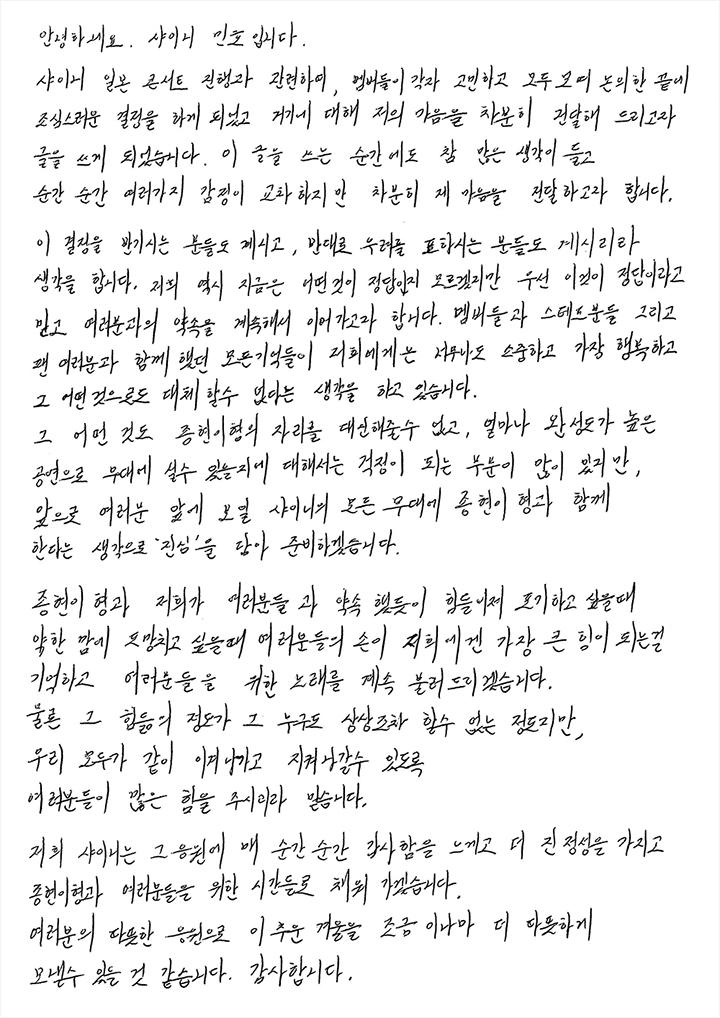 안녕하세요. 샤이니 민호입니다.
샤이니 일본 콘서트 진행과 관련하여, 멤버들이 각자 고민하고 모두 모여 논의한 끝에
조심스러운 결정을 하게 되었고 거기에 대해 저의 마음을 차분히 전달해 드리고자
글을 쓰게 되었습니다. 이 글을 쓰는 순간에도 참 많은 생각이 들고
순간 순간 여러가지 감정이 교차하지만 차분히 제 마음을 전달하고자 합니다.
이 결정을 반기시는 분들도 계시고, 반대로 우려를 표하시는 분들도 계시리라
생각을 합니다. 저희 역시 지금은 어떤것이 정답인지 모르겠지만 우선 이것이 정답이라고
믿고 여러분과의 약속을 계속해서 이어가고자 합니다. 멤버들과 스테프분들 그리고
팬 여러분과 함께 했던 모든기억들이 저희에게는 너무나도 소중하고 가장 행복하고
그 어떤것으로도 대체 할수 없다는 생각을 하고 있습니다.
그 어떤 것도 종현이형의 자리를 대신해줄수 없고, 얼마나 완성도가 높은
공연으로 무대에 설수 있을지에 대해서는 걱정이 되는 부분이 많이 있지만,
앞으로 여러분 앞에 보일 샤이니의 모든 무대에 종현이형과 함께
한다는 생각으로 '진심'을 담아 준비하겠습니다.
종현이형과 저희가 여러분들과 약속 했듯이 힘들어져 포기하고 싶을때
약한 맘에 도망치고 싶을때 여러분들의 손이 저희에겐 가장 큰 힘이 되는걸
기억하고 여러분들을 위한 노래를 계속 불러드리겠습니다.
물론 그 힘듦의 정도가 그 누구도 상상조차 할수 없는 정도지만,
우리 모두가 같이 이겨나가고 지켜나갈수 있도록
여러분들이 많은 힘을 주시리라 믿습니다.
저희 샤이니는 그 응원에 매 순간 순간 감사함을 느끼고 더 진정성을 가지고
종현이형과 여러분들을 위한 시간들로 채워 가겠습니다.
여러분의 따뜻한 응원으로 이 추운 겨울을 조금이나마 더 따뜻하게
보낼수 있을 것 같습니다. 감사합니다.